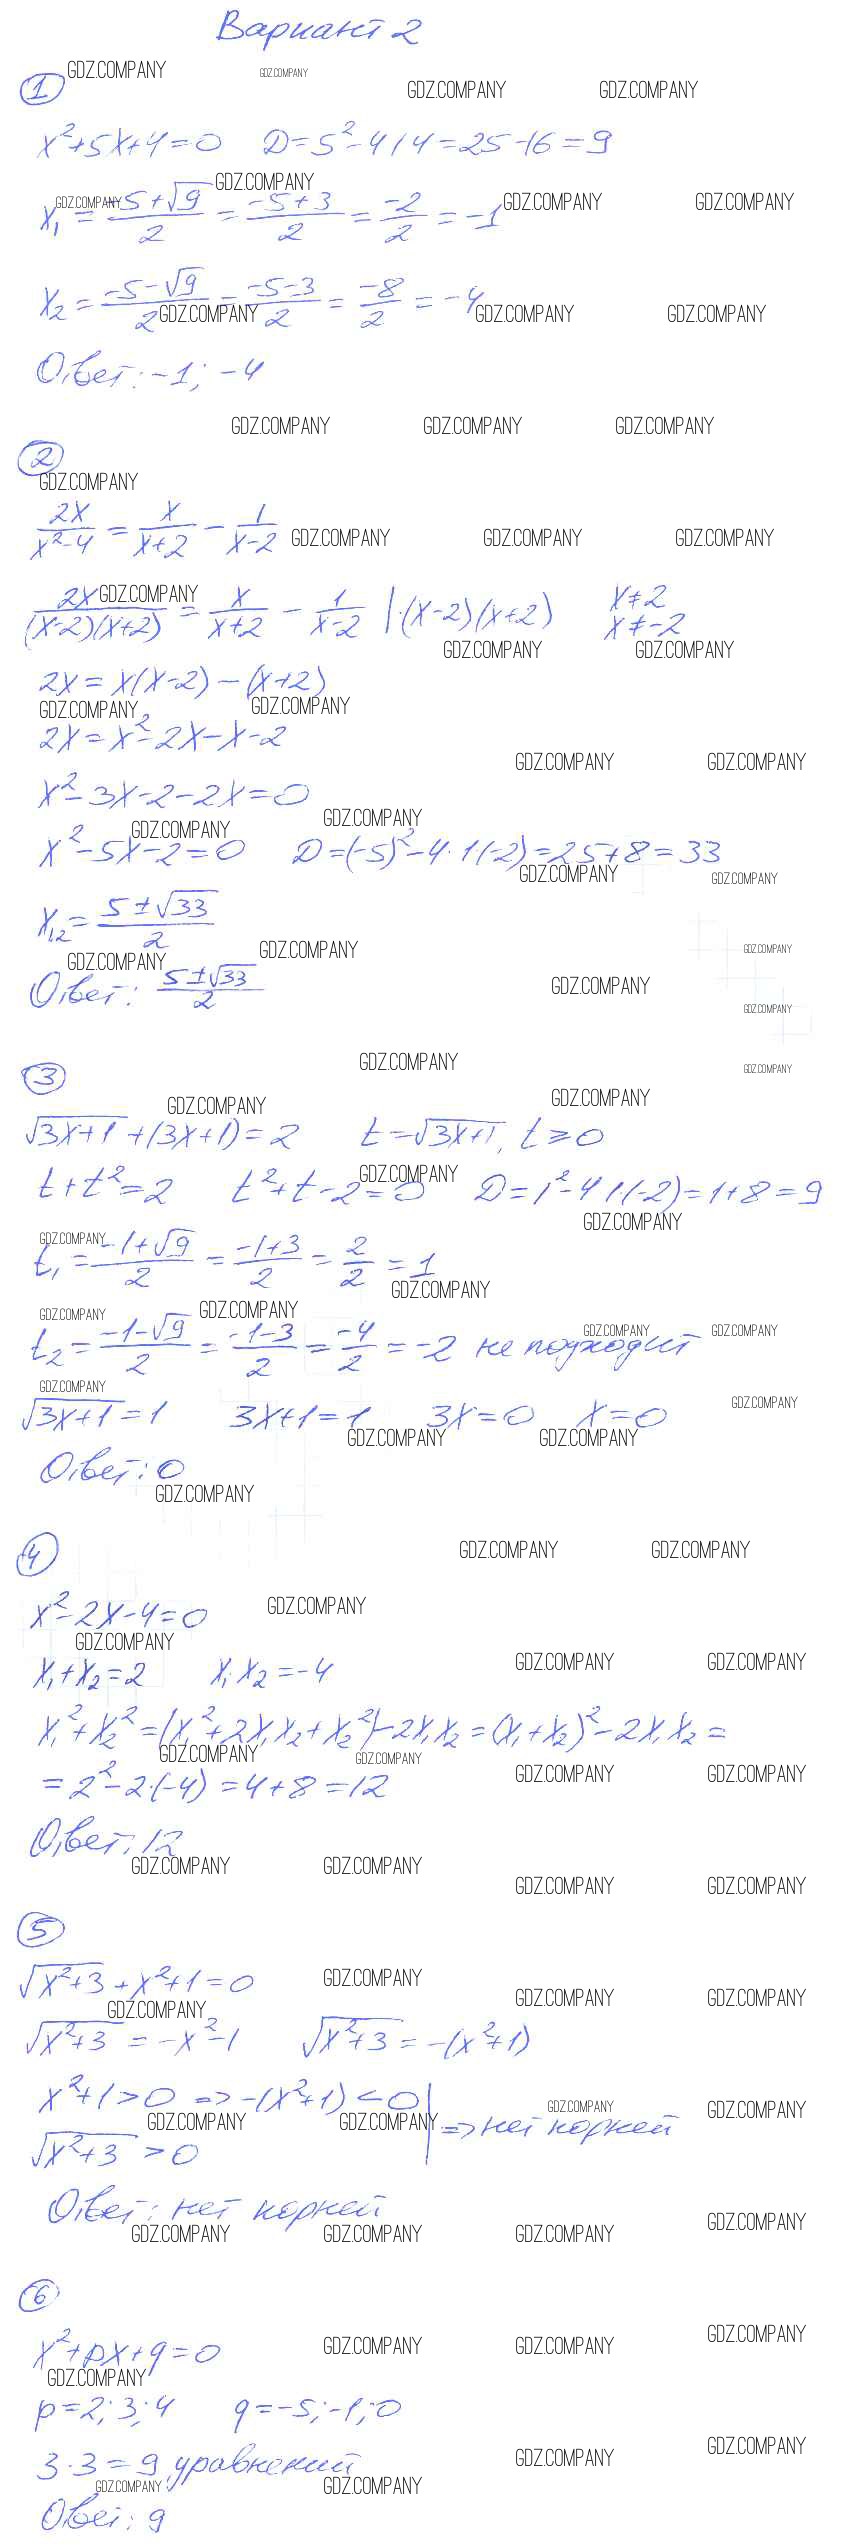 Вариант 2
1
x²+5x+4=0 D=5²-4·1·4=25-16=9
x₁=(-5+√9)/2=(-5+3)/2=-2/2=-1
x₂=(-5-√9)/2=(-5-3)/2=-8/2=-4
Ответ: -1; -4
2
2x/(x²-4)=x/(x+2)-1/(x-2)
2x/((x-2)(x+2))=x/(x+2)-1/(x-2) |·(x-2)(x+2) x≠2
x≠-2
2x=x(x-2)-(x+2)
2x=x²-2x-x-2
x²-3x-2-2x=0
x²-5x-2=0 D=(-5)²-4·1(-2)=25+8=33
x₁,₂=(5±√33)/2
Ответ: (5±√33)/2
3
√(3x+1)+(3x+1)=2 t=√(3x+1), t≥0
t+t²=2 t²+t-2=0 D=1²-4·1·(-2)=1+8=9
t₁=(-1+√9)/2=(-1+3)/2=2/2=1
t₂=(-1-√9)/2=(-1-3)/2=-4/2=-2 не подходит
√(3x+1)=1 3x+1=1 3x=0 x=0
Ответ: 0
4
x²-2x-4=0
x₁+x₂=2 x₁x₂=-4
x₁²+x₂²=(x₁²+2x₁x₂+x₂²)-2x₁x₂=(x₁+x₂)²-2x₁x₂=
=2²-2·(-4)=4+8=12
Ответ: 12
5
√(x²+3)+x²+1=0
√(x²+3)=-x²-1 √(x²+3)=-(x²+1)
x²+1>0 => -(x²+1)<0
√(x²+3)>0 => нет корней
Ответ: нет корней
6
x²+px+q=0
p=2; 3; 4 q=-5; -1; 0
3·3=9 уравнений
Ответ: 9
GDZ.COMPANY